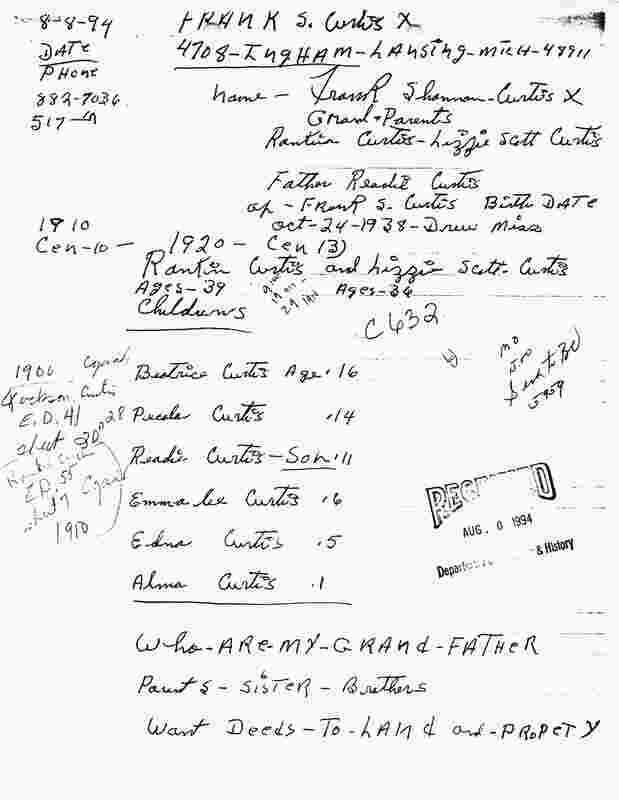 8-8-94
DATE
PHONE
882-7036
517-
FRANK S. Curtis X
4708-INGHAM-LANSING-MICH-48911
name - Frank Shannon-Curtis X
Grand-Parents
Rankin Curtis-Lizzie Scott Curtis
Father Readie Curtis
of - FRANK S. Curtis Birth DATE
oct-24-1938-Drew Miss
1910
Cen-10 - 1920 - Cen (3)
Rankin Curtis and Lizzie Scott-Curtis
Ages-39 Ages-36
Childrens
C632
Beatrice Curtis Age. 16
Curtis .14
Readie Curtis-Son.11
Emma lee Curtis .6
Edna Curtis .5
Alma Curtis .1
1900
Curtis
E.D. 41
1910
RECEIVED
AUG. 0 1994
& History
Who-ARe-MY-GRANd-FATHeR
Parents-SiSTeR-Brothers
Want Deeds-To-LANd and-PRoPeTY